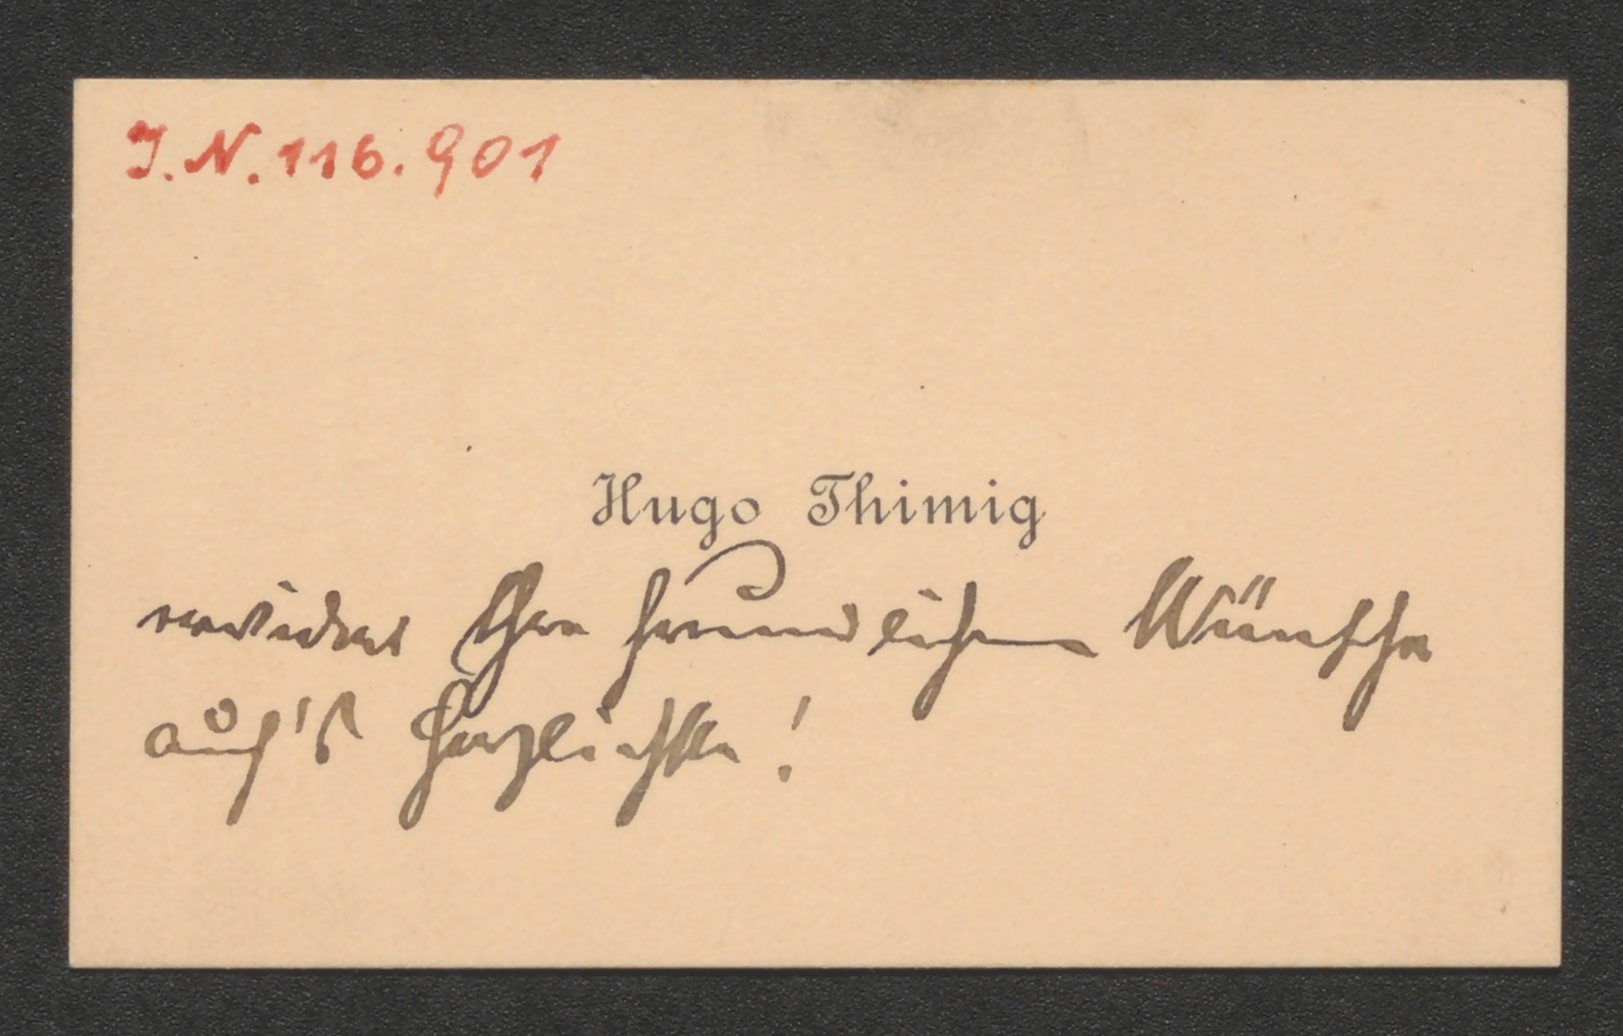 I.N.116.901
Hugo Thimig
erwidert Ihre freundlichen Wünsche
auf's Herzlichste!